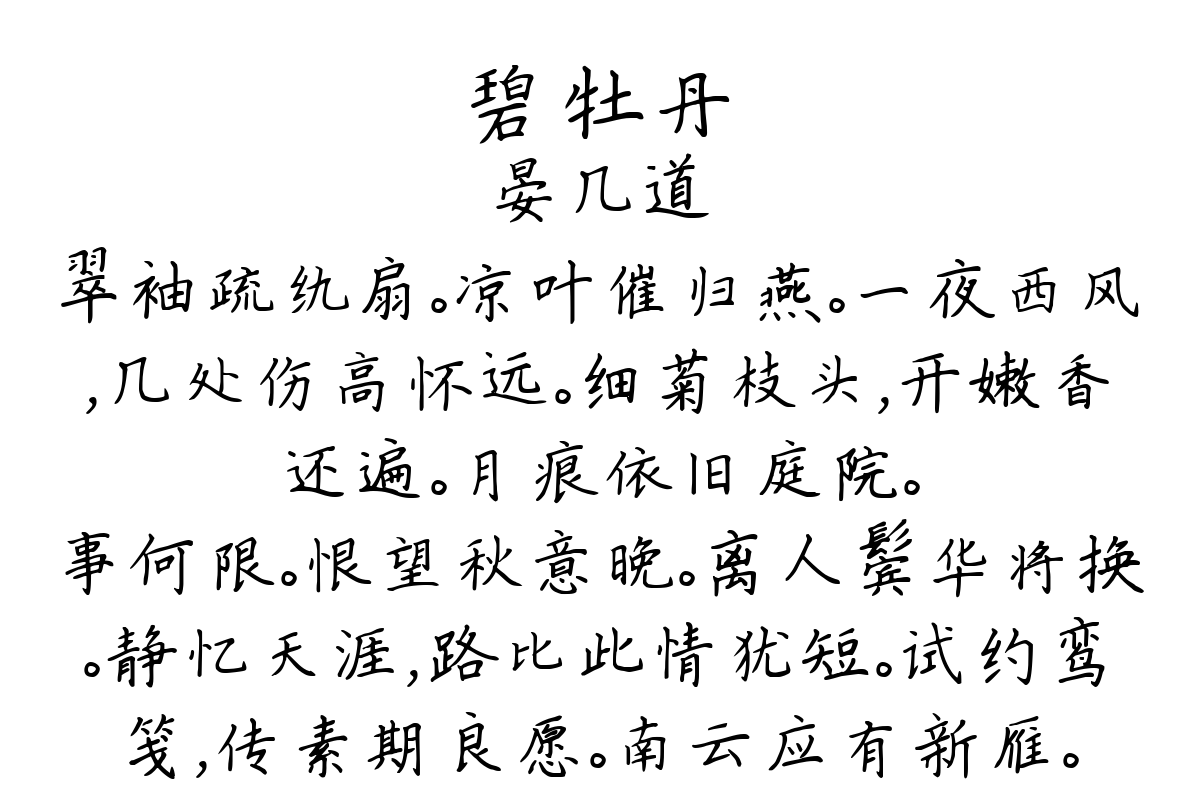 碧牡丹
晏几道
翠袖疏纨扇。凉叶催归燕。一夜西风
,几处伤高怀远。细菊枝头,开嫩香
还遍。月痕依旧庭院。
事何限。恨望秋意晚。离人鬓华将换
。静忆天涯,路比此情犹短。试约鸾
笺,传素期良愿。南云应有新雁。